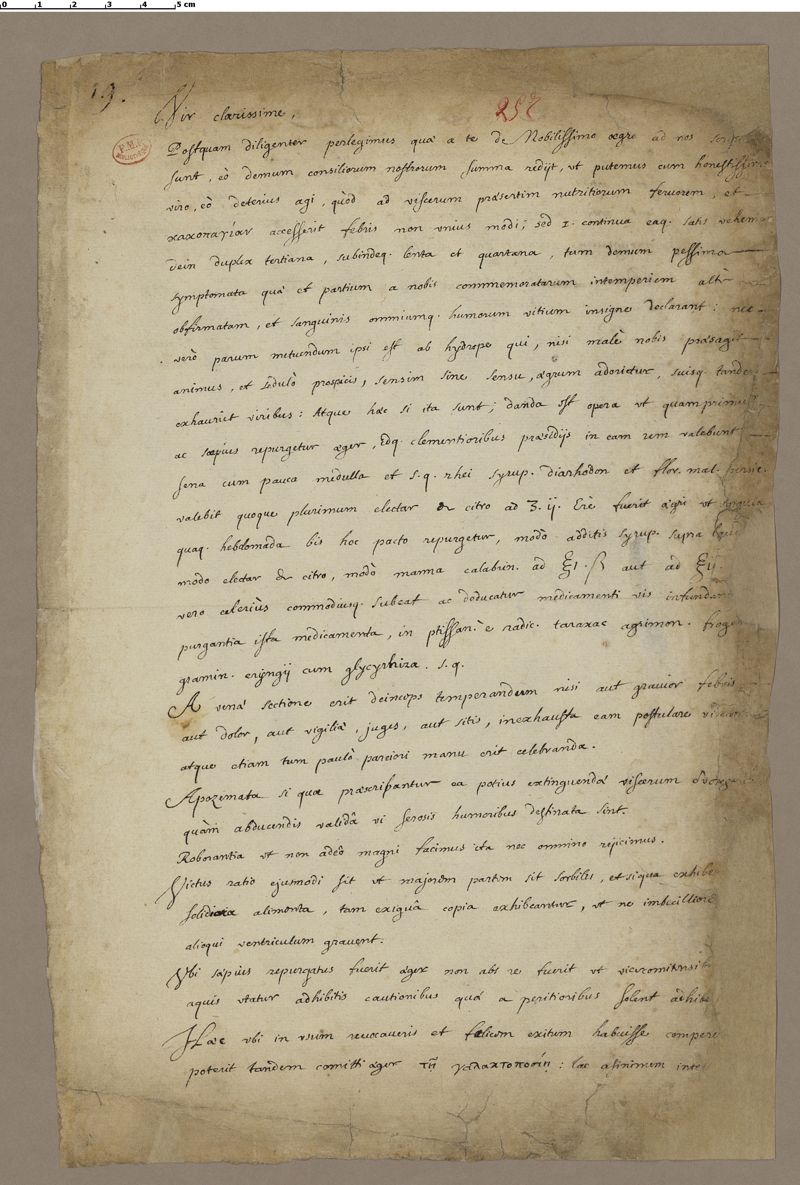 0 1 2 3 4 5 cm
19.
252
Vir clarissime,
P.M.
Postquam diligenter perlegimus quæ a te de Nobilissimo ægro ad nos
sunt, eò demum consiliorum nostrorum summa redijt, ut putemus cum honestissimo
viro, eò deterius agi, quòd ad viscerum præsertim nutritiorum fervorem, et
κακοπαγίαν accesserit febris non unius modi; sed 1. continua eaq. satis vehem
dein duplex tertiana, subindeq. lenta et quartana, tum demum pessima
symptomata quæ et partium a nobis commemoratarum intemperiem altè
obfirmatam, et sanguinis omniumq. humorum vitium insigne declarant: nec
verò parum metuendum ipsi est ab hydrope qui, nisi malè nobis præsagit
animus, et sedulò prospicis, sensim sine sensu, ægrum adorietur, suisq. tandem
exhauriet viribus: Atque hæc si ita sunt; danda est opera ut quamprimum
ac sæpius repurgetur æger, Edq. clementioribus præsidijs in eam rem valebunt
sena cum pauca medulla et s.q. rhei syrup. diarhodon et flor. mal. persic.
valebit quoque plurimum electar de citro ad ʒ. ij. Ere fuerit ægri ut singula
quaq. hebdomada bis hoc pacto repurgetur, modò additis syrup. supra
modo electar de citro, modò manna calabrin. ad ℥1. ß aut ad ℥ij
vero celeriùs commodiusq. subeat ac deducatur medicamenti vis infundan
purgantia ista medicamenta, in ptissan. è radic. taraxac agrimon. frag
gramin. eryngij cum glycyrhiza. s.q.
A venæ sectione erit deinceps temperandum nisi aut gravior febris
aut dolor, aut vigiliæ, juges, aut sitis, inexhausta eam postulare vide
atque etiam tum paulò parciori manu erit celebranda.
Apozemata si quæ præscribantur ea potius extinguendæ viscerum
quàm abducendis validâ vi serosis humoribus destinata sint.
Roborantia ut non adeò magni facimus ita nec omnino rejicimus.
Victus ratio ejusmodi sit ut majorem partem sit sorbilis, et siqua exhibe
solidiora alimenta, tam exiguâ copia exhibeantur, ut ne imbecilliorem
alioqui ventriculum gravent.
Ubi sæpius repurgatus fuerit æger non abs re fuerit ut
aquis utatur adhibitis cautionibus quæ a peritioribus solent adhibe
Hæc ubi in usum revocaveris et felicem exitum habuisse compere
poterit tandem comitti æger τῇ γαλακτοποσίῃ: lac asininum inte